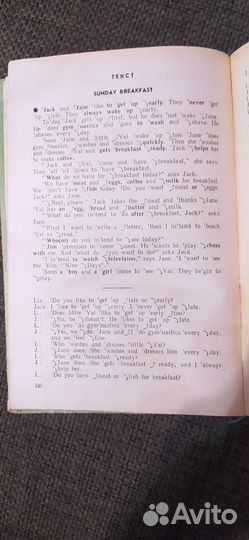 ТЕКСТ
SUNDAY BREAKFAST
Jack and Jane like to get up early. They never get
up late. They always wake up early.
To day Jack gets up first, but he does not wake Jane.
He does gymnastics and goes to wash and shave. He
shaves every day.
Soon Jane and little Val wake up too. Jane does
gymnastics, washes and dresses quickly. Then she washes
and dresses Val and gets breakfast ready. Jack helps her
to make coffee.
"Jack and Val, come and have breakfast," she says.
They all sit down to have breakfast.
"What do we have for breakfast today?" asks Jack.
"We have meat and eggs, coffee and milk for breakfast.
We don't have fish today. Do you want meat or eggs,
Jack?" asks Jane.
"Meat, please." Jack takes the meat and thanks Jane.
Val has an egg, bread and butter and milk.
"What do you intend to do after breakfast, Jack?" asks
Jane.
"First I want to write a letter, then I intend to teach
Val to read."
"Who(m) do you intend to see today?"
"Jim promises to come. He wants to play chess
with me. And what do you want to do?" asks Jack.
"I intend to watch television," says Jane. "I want to see
the film "Nine Days"."
Soon a boy and a girl come to see Val. They begin to
play.
Liz: Do you like to get up late or early?
Jack I like to get up early. I never get up late.
L. Does little Val like to get up early too?
J. No, he doesn't. He likes to get up late.
L. Do you do gymnastics every day?
J. Yes, we do. Jane and I do gymnastics every day,
and we feel fine.
L. Who washes and dresses little Val?
J. Jane does. She washes and dresses him every day.
L. Who gets breakfast ready?
J. Jane does. She gets breakfast ready, and I always
help her.
L. Do you have meat or fish for breakfast?
126
Avito